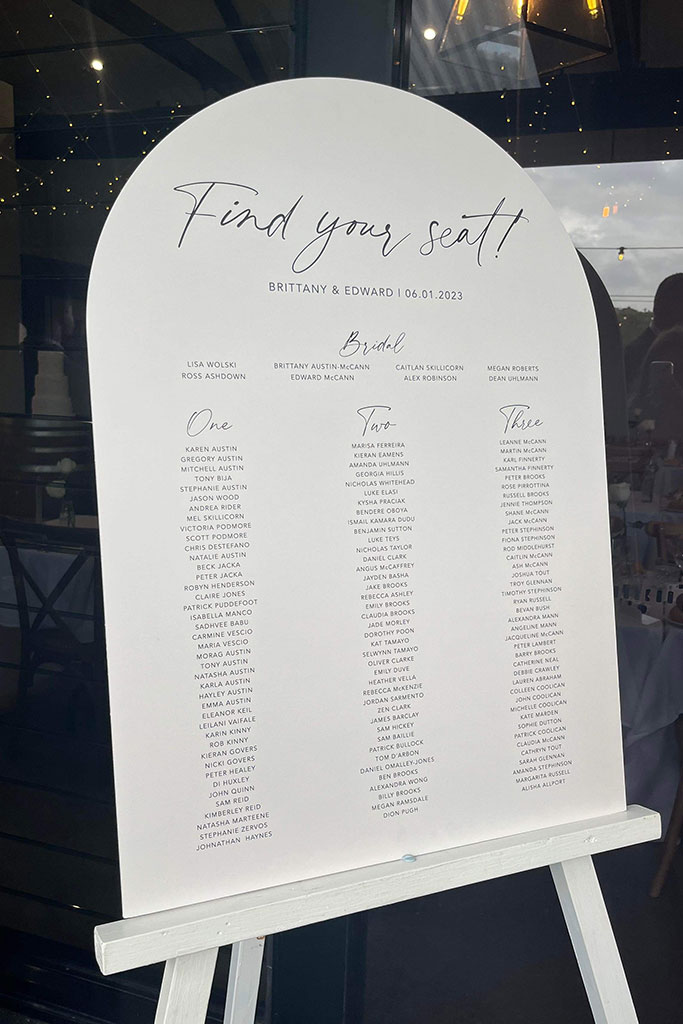 Find your seat!
BRITTANY & EDWARD | 06.01.2023
Bridal
LISA WOLSKI
ROSS ASHDOWN
BRITTANY AUSTIN-McCANN
EDWARD McCANN
CAITLAN SKILLICORN
ALEX ROBINSON
MEGAN ROBERTS
DEAN UHLMANN
One
KAREN AUSTIN
GREGORY AUSTIN
MITCHELL AUSTIN
TONY BIJA
STEPHANIE AUSTIN
JASON WOOD
ANDREA RIDER
MEL SKILLICORN
VICTORIA PODMORE
SCOTT PODMORE
CHRIS DESTEFANO
NATALIE AUSTIN
BECK JACKA
PETER JACKA
ROBYN HENDERSON
CLAIRE JONES
PATRICK PUDDEFOOT
ISABELLA MANCO
SADHVEE BABU
CARMINE VESCIO
MARIA VESCIO
MORAG AUSTIN
TONY AUSTIN
NATASHA AUSTIN
KARLA AUSTIN
HAYLEY AUSTIN
EMMA AUSTIN
ELEANOR KEIL
LEILANI VAIFALE
KARIN KINNY
ROB KINNY
KIERAN GOVERS
NICKI GOVERS
PETER HEALEY
DI HUXLEY
JOHN QUINN
SAM REID
KIMBERLEY REID
NATASHA MARTEENE
STEPHANIE ZERVOS
JOHNATHAN HAYNES
Two
MARISA FERREIRA
KIERAN EAMENS
AMANDA UHLMANN
GEORGIA HILLIS
NICHOLAS WHITEHEAD
LUKE ELASI
KYSHA PRACIAK
BENDERE OBOYA
ISMAIL KAMARA DUDU
BENJAMIN SUTTON
LUKE TEYS
NICHOLAS TAYLOR
DANIEL CLARK
ANGUS McCAFFREY
JAYDEN BASHA
JAKE BROOKS
REBECCA ASHLEY
EMILY BROOKS
CLAUDIA BROOKS
JADE MORLEY
DOROTHY POON
KAT TAMAYO
SELWYNN TAMAYO
OLIVER CLARKE
EMILY DUVE
HEATHER VELLA
REBECCA McKENZIE
JORDAN SARMENTO
ZEN CLARK
JAMES BARCLAY
SAM HICKEY
SAM BAILLIE
PATRICK BULLOCK
TOM D'ARBON
DANIEL OMALLEY-JONES
BEN BROOKS
ALEXANDRA WONG
BILLY BROOKS
MEGAN RAMSDALE
DION PUGH
Three
LEANNE McCANN
MARTIN McCANN
KARL FINNERTY
SAMANTHA FINNERTY
PETER BROOKS
ROSE PIRROTTINA
RUSSELL BROOKS
JENNIE THOMPSON
SHANE McCANN
JACK McCANN
PETER STEPHINSON
FIONA STEPHINSON
ROD MIDDLEHURST
CAITLIN McCANN
ASH McCANN
JOSHUA TOUT
TROY GLENNAN
TIMOTHY STEPHINSON
RYAN RUSSELL
BEVAN BUSH
ALEXANDRA MANN
ANGELINE MANN
JACQUELINE McCANN
PETER LAMBERT
BARRY BROOKS
CATHERINE NEAL
DEBBIE CRAWLEY
LAUREN ABRAHAM
COLLEEN COOLICAN
JOHN COOLICAN
MICHELLE COOLICAN
KATE MARDEN
SOPHIE DUTTON
PATRICK COOLICAN
CLAUDIA McCANN
CATHRYN TOUT
SARAH GLENNAN
AMANDA STEPHINSON
MARGARITA RUSSELL
ALISHA ALLPORT